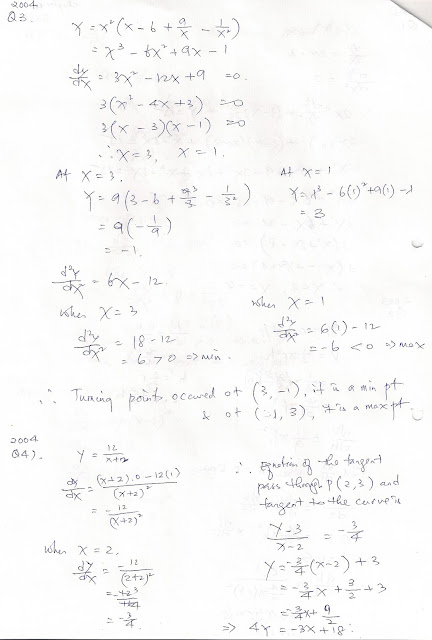 2004
Q3.
y = x²(x - 6 + 9/x - 1/x²)
= x³ - 6x² + 9x - 1
dy/dx = 3x² - 12x + 9 = 0.
3(x² - 4x + 3) = 0
3(x - 3)(x - 1) = 0
∴ x = 3, x = 1.
At x = 3.
y = 9(3 - 6 + 9/3 - 1/3²)
= 9(-1/9)
= -1.
At x = 1
y = 1³ - 6(1)² + 9(1) - 1
= 3
d²y/dx² = 6x - 12.
when x = 3
d²y/dx² = 18 - 12
= 6 > 0 => min.
when x = 1
d²y/dx² = 6(1) - 12
= -6 < 0 => max
∴ Turning points occured at (3, -1), it is a min pt
& at (1, 3), it is a max pt.
2004
Q4).
y = 12/x+2
dy/dx = (x+2).0 - 12(1)/(x+2)²
= -12/(x+2)²
when x = 2.
dy/dx = -12/(2+2)²
= -12 3/16
= -3/4.
∴ Equation of the tangent
pass through P(2,3) and
tangent to the curve is
y-3/x-2 = -3/4
y = -3/4(x-2) + 3
= -3/4 x + 3/2 + 3
= -3/4 x + 9/2
=> 4x = -3x + 18.